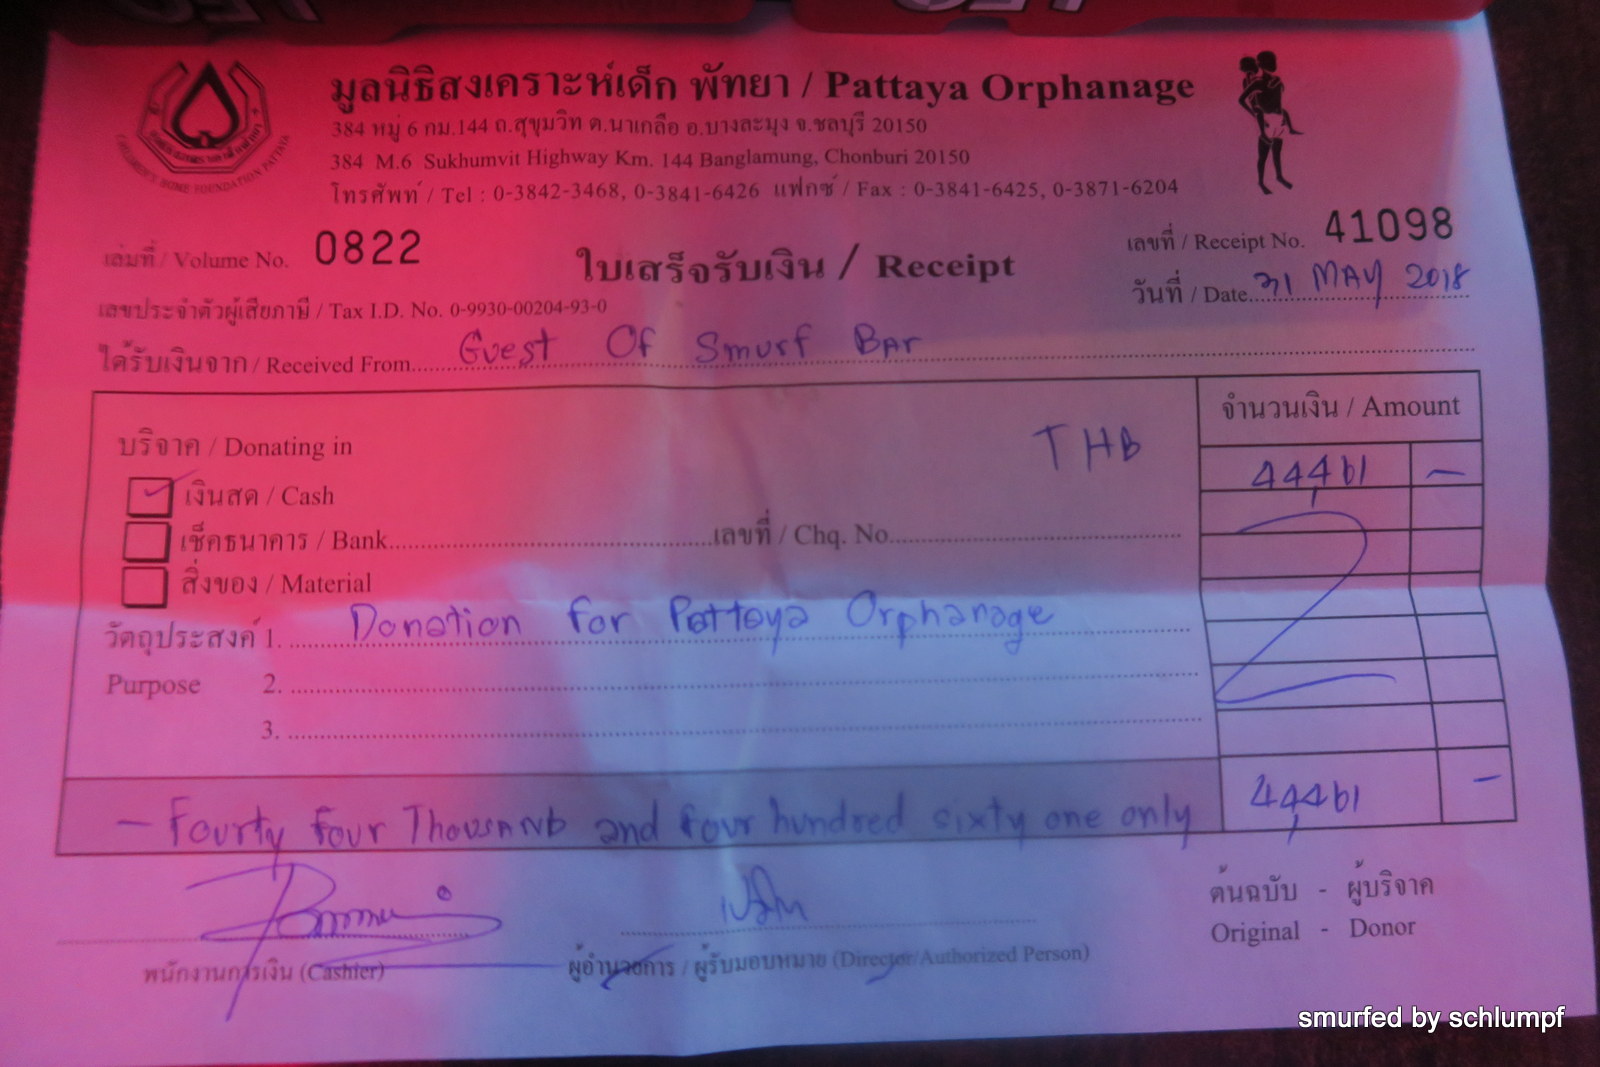 มูลนิธิสงเคราะห์เด็ก พัทยา / Pattaya Orphanage
384 หมู่ 6 กม.144 ถ.สุขุมวิท ต.นาเกลือ อ.บางละมุง จ.ชลบุรี 20150
384 M.6 Sukhumvit Highway Km. 144 Banglamung, Chonburi 20150
โทรศัพท์ / Tel : 0-3842-3468, 0-3841-6426 แฟกซ์ / Fax : 0-3841-6425, 0-3871-6204
เล่มที่ / Volume No. 0822
ใบเสร็จรับเงิน / Receipt
เลขที่ / Receipt No. 41098
วันที่ / Date 31 MAY 2018
เลขประจำตัวผู้เสียภาษี / Tax I.D. No. 0-9930-00204-93-0
ได้รับเงินจาก / Received From Guest Of Smurf Bar
จำนวนเงิน / Amount
บริจาค / Donating in THB
44,461 –
เงินสด / Cash
เช็คธนาคาร / Bank เลขที่ / Chq. No.
สิ่งของ / Material
วัตถุประสงค์ 1. Donation for Pattaya Orphanage
Purpose 2.
3.
– Fourty four Thousand and four hundred sixty one only 44,461 –
พนักงานการเงิน (Cashier)
ผู้อำนวยการ / ผู้รับมอบหมาย (Director/Authorized Person)
ต้นฉบับ - ผู้บริจาค
Original - Donor
smurfed by schlumpf